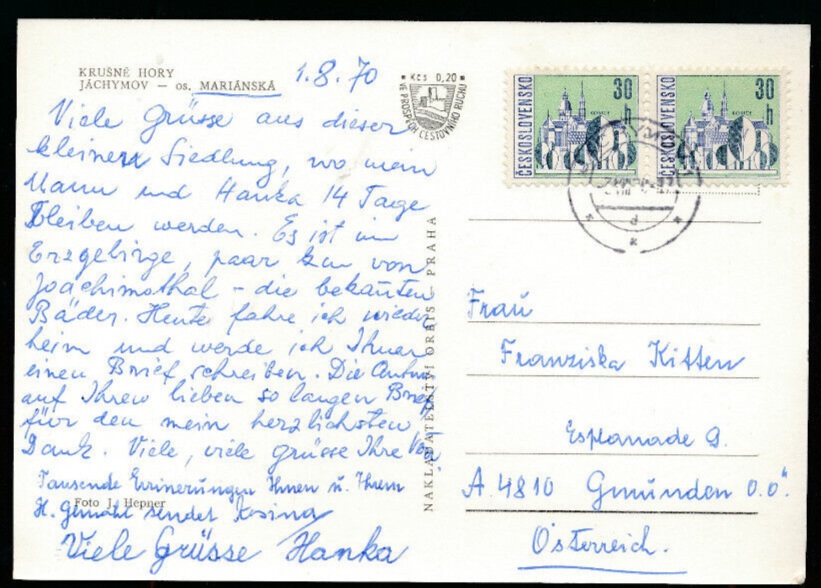 KRUŠNÉ HORY
JÁCHYMOV — os. MARIÁNSKÁ
1.8.70
Viele Grüsse aus dieser
kleinen Siedlung, wo mein
Mann und Hanka 14 Tage
bleiben werden. Es ist im
Erzgebirge, paar km von
Joachimsthal - die bekannten
Bäder. Heute fahre ich wieder
heim und werde ich Ihnen
einen Brief schreiben. Die Antwort
auf Ihren lieben so langen Brief,
für den mein herzlichsten
Dank. Viele, viele grüsse Ihre
Tausende Erinnerungen Ihnen u. Ihrem
Foto J. Hepner
H. Gemahl sendet Kosina
Viele Grüsse Hanka
NAKLADATELSTVÍ ORBIS — PRAHA
Kčs 0,20
VE PROSPĚCH CESTOVNÍHO RUCHU
ČESKOSLOVENSKO
30 h
KOŠICE
ČESKOSLOVENSKO
30 h
KOŠICE
Frau
Franziska Kitten
Esplanade 9.
A. 4810 Gmünden O.Ö.
Österreich.